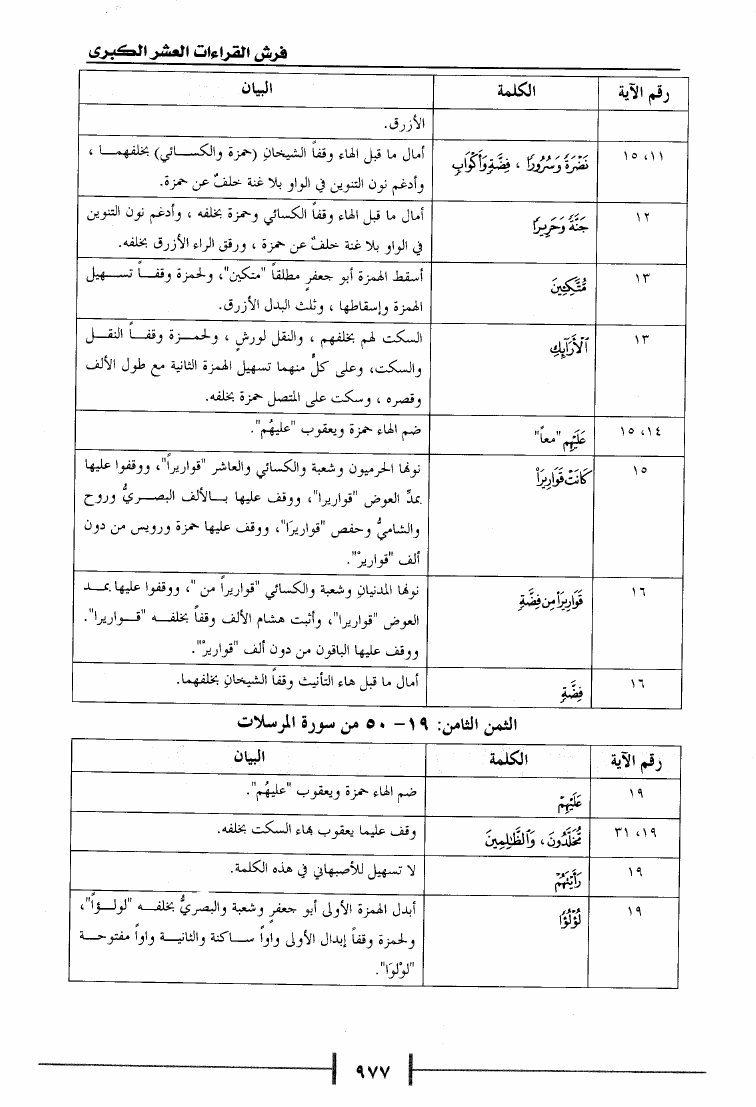 فرش القراءات العشر الكبرى
رقم الآية الكلمة البيان
الأزرق.
١١، ١٥ نَضْرَةً وَسُرُورًا ، فِضَّةٍ وَأَكْوَابٍ أمال ما قبل الهاء وقفاً الشيخانِ (حمزة والكسائي) بخلفهما ،
وأدغم نون التنوين في الواو بلا غنة خلفٌ عن حمزة.
١٢ جَنَّةً وَحَرِيرًا أمال ما قبل الهاء وقفاً الكسائي وحمزة بخلفه ، وأدغم نون التنوين
في الواو بلا غنة خلفٌ عن حمزة ، ورقق الراء الأزرق بخلفه.
١٣ مُتَّكِئِينَ أسقط الهمزة أبو جعفرٍ مطلقاً "متكين"، ولحمزة وقفاً تسهيل
الهمزة وإسقاطها ، وثلث البدل الأزرق.
١٣ الْأَرَائِكِ السكت لهم بخلفهم ، والنقل لورشٍ ، ولحمزة وقفاً النقل
والسكت، وعلى كلٍّ منهما تسهيل الهمزة الثانية مع طول الألف
وقصره ، وسكت على المتصل حمزة بخلفه.
١٤، ١٥ عَلَيْهِم "معاً" ضم الهاء حمزة ويعقوب "عليهُم".
١٥ كَانَتْ قَوَارِيرَا نونها الحرميون وشعبة والكسائي والعاشر "قواريراً"، ووقفوا عليها
بمدِّ العوض "قواريرا"، ووقف عليها بالألف البصريُّ وروح
والشاميُّ وحفص "قواريرَا"، ووقف عليها حمزة ورويس من دون
ألف "قواريرْ".
١٦ قَوَارِيرَا مِن فِضَّةٍ نونها المدنيانِ وشعبة والكسائي "قواريراً من "، ووقفوا عليها بمد
العوض "قواريرا"، وأثبت هشام الألف وقفاً بخلفه "قواريرا".
ووقف عليها الباقون من دون ألف "قواريرْ".
١٦ فِضَّةٍ أمال ما قبل هاء التأنيث وقفاً الشيخانِ بخلفهما.
الثمن الثامن: ١٩- ٥٠ من سورة المرسلات
رقم الآية الكلمة البيان
١٩ عَلَيْهِمْ ضم الهاء حمزة ويعقوب "عليهُم".
١٩، ٣١ مُّخَلَّدُونَ، وَالظَّالِمِينَ وقف عليما يعقوب بهاء السكت بخلفه.
١٩ رَأَيْتَهُمْ لا تسهيل للأصبهاني في هذه الكلمة.
١٩ لُؤْلُؤًا أبدل الهمزة الأولى أبو جعفرٍ وشعبة والبصريُّ بخلفه "لولؤاً"،
ولحمزة وقفاً إبدال الأولى واواً ساكنة والثانية واواً مفتوحة
"لوْلوَا".
٩٧٧